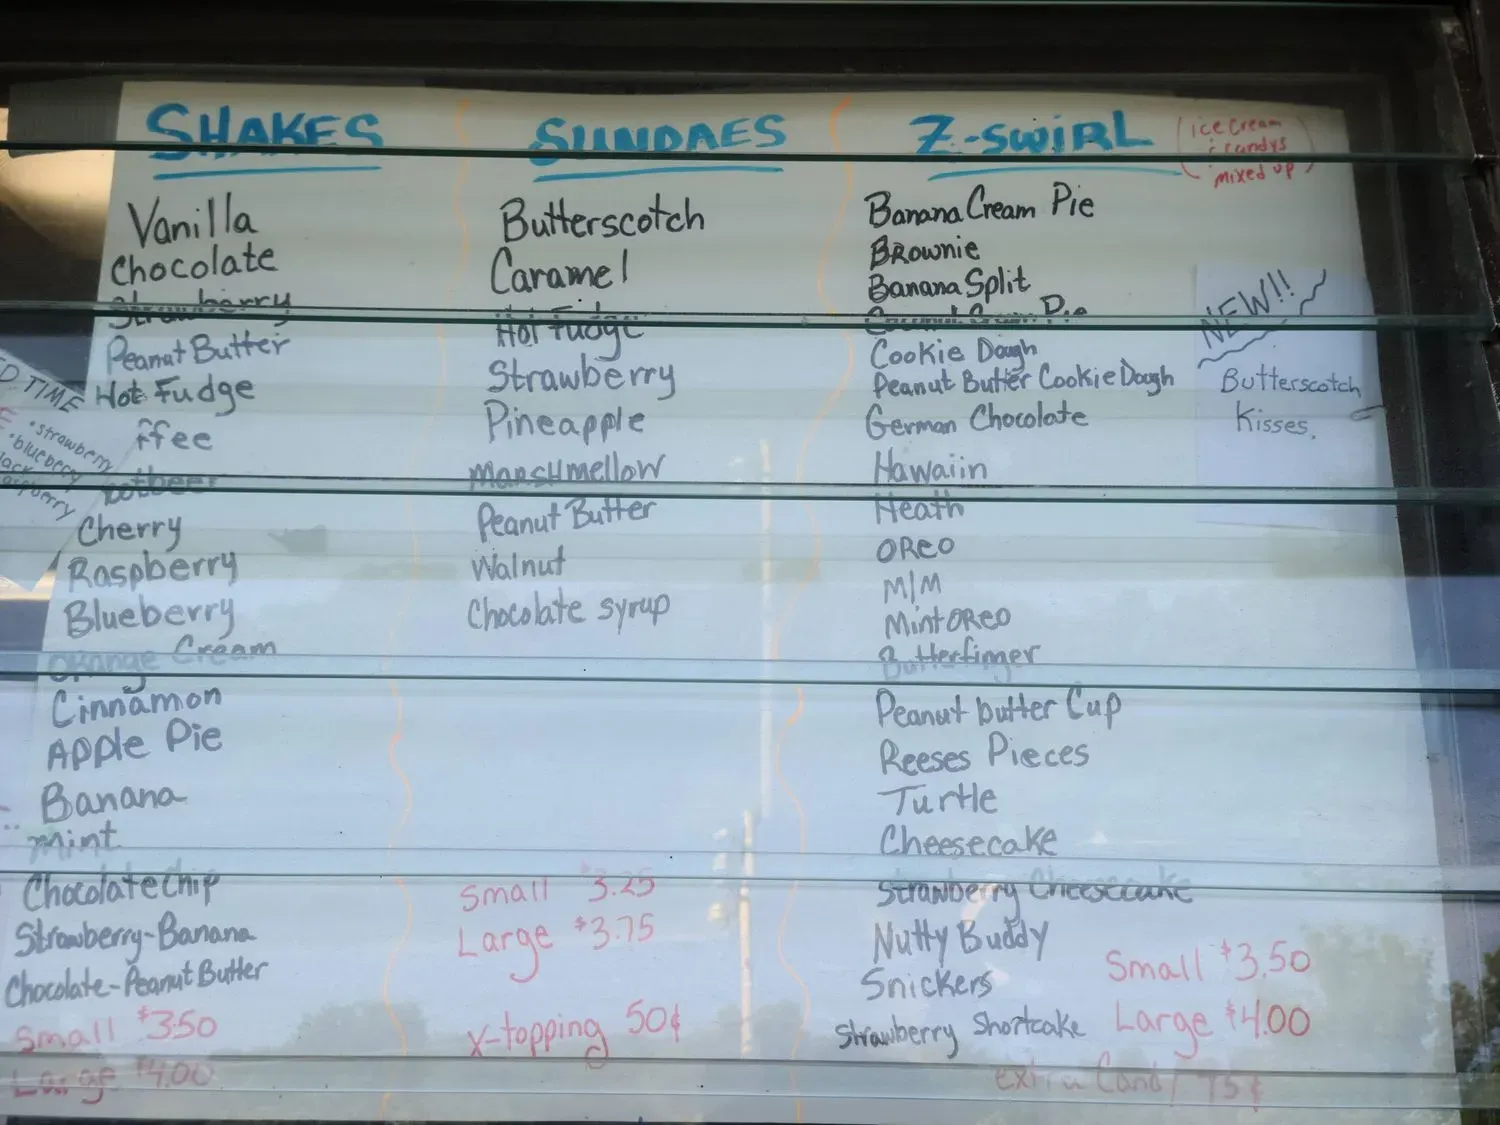 SHAKES
Vanilla
Chocolate
Strawberry
Peanut Butter
Hot Fudge
ffee
ootbeer
Cherry
Raspberry
Blueberry
Orange Cream
Cinnamon
Apple Pie
Banana
mint
Chocolate Chip
Strawberry-Banana
Chocolate-Peanut Butter
Small $3.50
Large $4.00
SUNDAES
Butterscotch
Caramel
Hot Fudge
Strawberry
Pineapple
Marshmellow
Peanut Butter
Walnut
Chocolate syrup
Small $3.25
Large $3.75
X-topping 50¢
Z-SWIRL
(ice cream
& candys
mixed up)
Banana Cream Pie
Brownie
Banana Split
Coconut Cream Pie
Cookie Dough
Peanut Butter Cookie Dough
German Chocolate
Hawaiin
Heath
OREO
M/M
Mint OREO
Butterfinger
Peanut butter Cup
Reeses Pieces
Turtle
Cheesecake
Strawberry Cheesecake
Nutty Buddy
Snickers
Strawberry Shortcake
Small $3.50
Large $4.00
extra Candy 75¢
NEW!!
Butterscotch
Kisses.
ED TIME
•strawberry
•blueberry